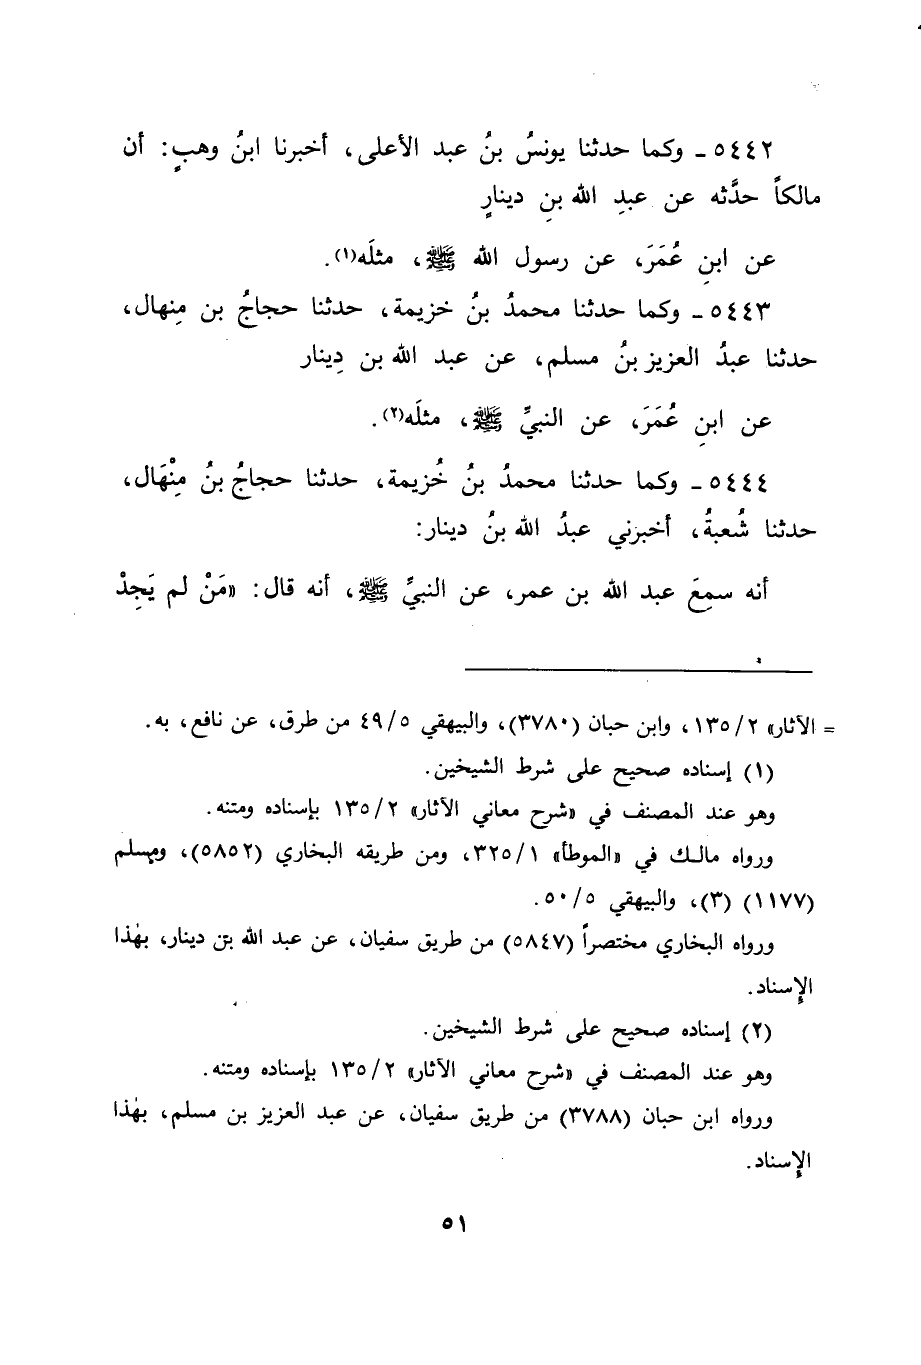 ٥٤٤٢ ـ وكما حدثنا يونسُ بنُ عبد الأعلى، أخبرنا ابنُ وهبٍ: أن
مالكاً حدَّثه عن عبدِ الله بنِ دينارٍ
عن ابنِ عُمَرَ، عن رسول الله ﷺ، مثلَه(١).
٥٤٤٣ ـ وكما حدثنا محمدُ بنُ خزيمة، حدثنا حجاجُ بن مِنهال،
حدثنا عبدُ العزيز بنُ مسلم، عن عبد الله بن دِينار
عن ابنِ عُمَرَ، عن النبيِّ ﷺ، مثلَه(٢).
٥٤٤٤ ـ وكما حدثنا محمدُ بنُ خُزيمة، حدثنا حجاجُ بنُ مِنْهَال،
حدثنا شُعبةُ، أخبرني عبدُ الله بنُ دينار:
أنه سمِعَ عبد الله بن عمر، عن النبيِّ ﷺ، أنه قال: «مَنْ لم يَجِدْ
= الآثار» ١٣٥/٢، وابن حبان (٣٧٨٠)، والبيهقي ٤٩/٥ من طرق، عن نافع، به.
(١) إسناده صحيح على شرط الشيخين.
وهو عند المصنف في «شرح معاني الآثار» ١٣٥/٢ بإسناده ومتنه.
ورواه مالك في «الموطأ» ٣٢٥/١، ومن طريقه البخاري (٥٨٥٢)، ومسلم
(١١٧٧) (٣)، والبيهقي ٥٠/٥.
ورواه البخاري مختصراً (٥٨٤٧) من طريق سفيان، عن عبد الله بن دينار، بهٰذا
الإِسناد.
(٢) إسناده صحيح على شرط الشيخين.
وهو عند المصنف في «شرح معاني الآثار» ١٣٥/٢ بإسناده ومتنه.
ورواه ابن حبان (٣٧٨٨) من طريق سفيان، عن عبد العزيز بن مسلم، بهٰذا
الإِسناد.
٥١